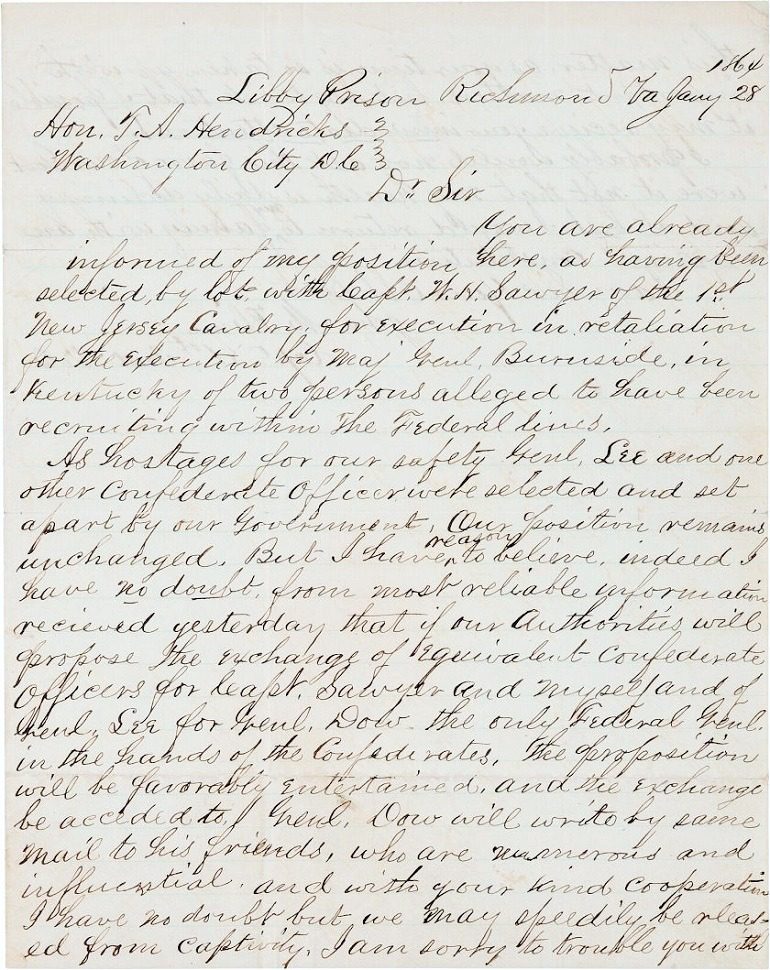 1864
Libby Prison Richmond Va Jany 28
Hon. T. A. Hendricks
Washington City D.C
Dr Sir
You are already
informed of my position here, as having been
selected, by lot, with Capt. W. H. Sawyer of the 1st
New Jersey Cavalry, for execution in retaliation
for the execution by Maj Genl. Burnside, in
Kentucky of two persons alleged to have been
recruiting within the Federal lines.
As hostages for our safety Genl. Lee and one
other Confederate Officer were selected and set
apart by our Government. Our position remains
unchanged. But I have reason to believe, indeed I
have no doubt, from most reliable information
recieved yesterday that if our Authorities will
propose the exchange of equivalent Confederate
Officers for Capt. Sawyer and myself and of
Genl. Lee for Genl. Dow the only Federal Genl.
in the hands of the Confederates, the proposition
will be favorably entertained, and the exchange
be acceded to. Genl. Dow will write by same
mail to his friends, who are numerous and
influential, and with your kind cooperation
I have no doubt but we may speedily be releas-
ed from captivity. I am sorry to trouble you with